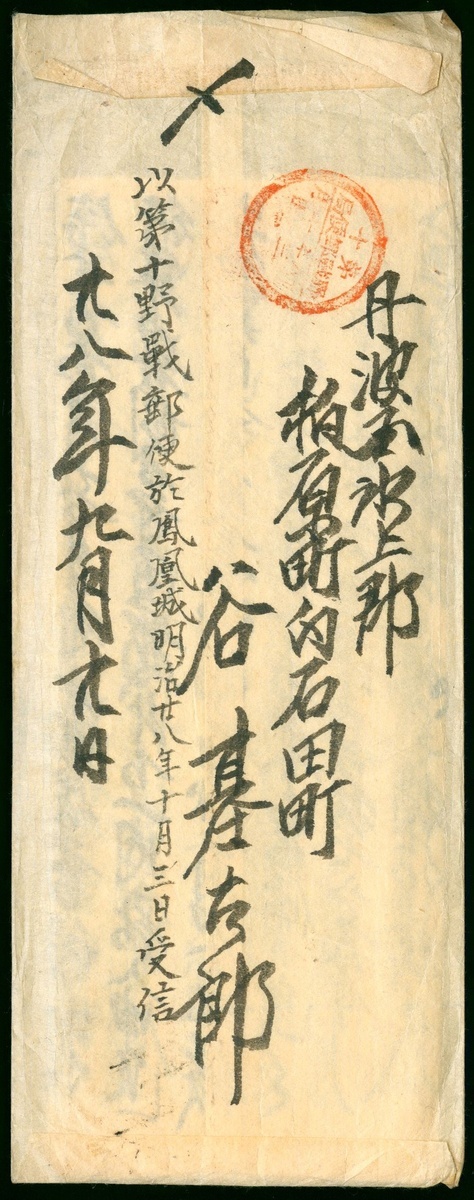 〆
丹波国氷上郡
柏原町内石田町
谷 基
郎
以第十野戰郵便於鳳凰城明治廿八年十月三日受信
廿八年九月廿日